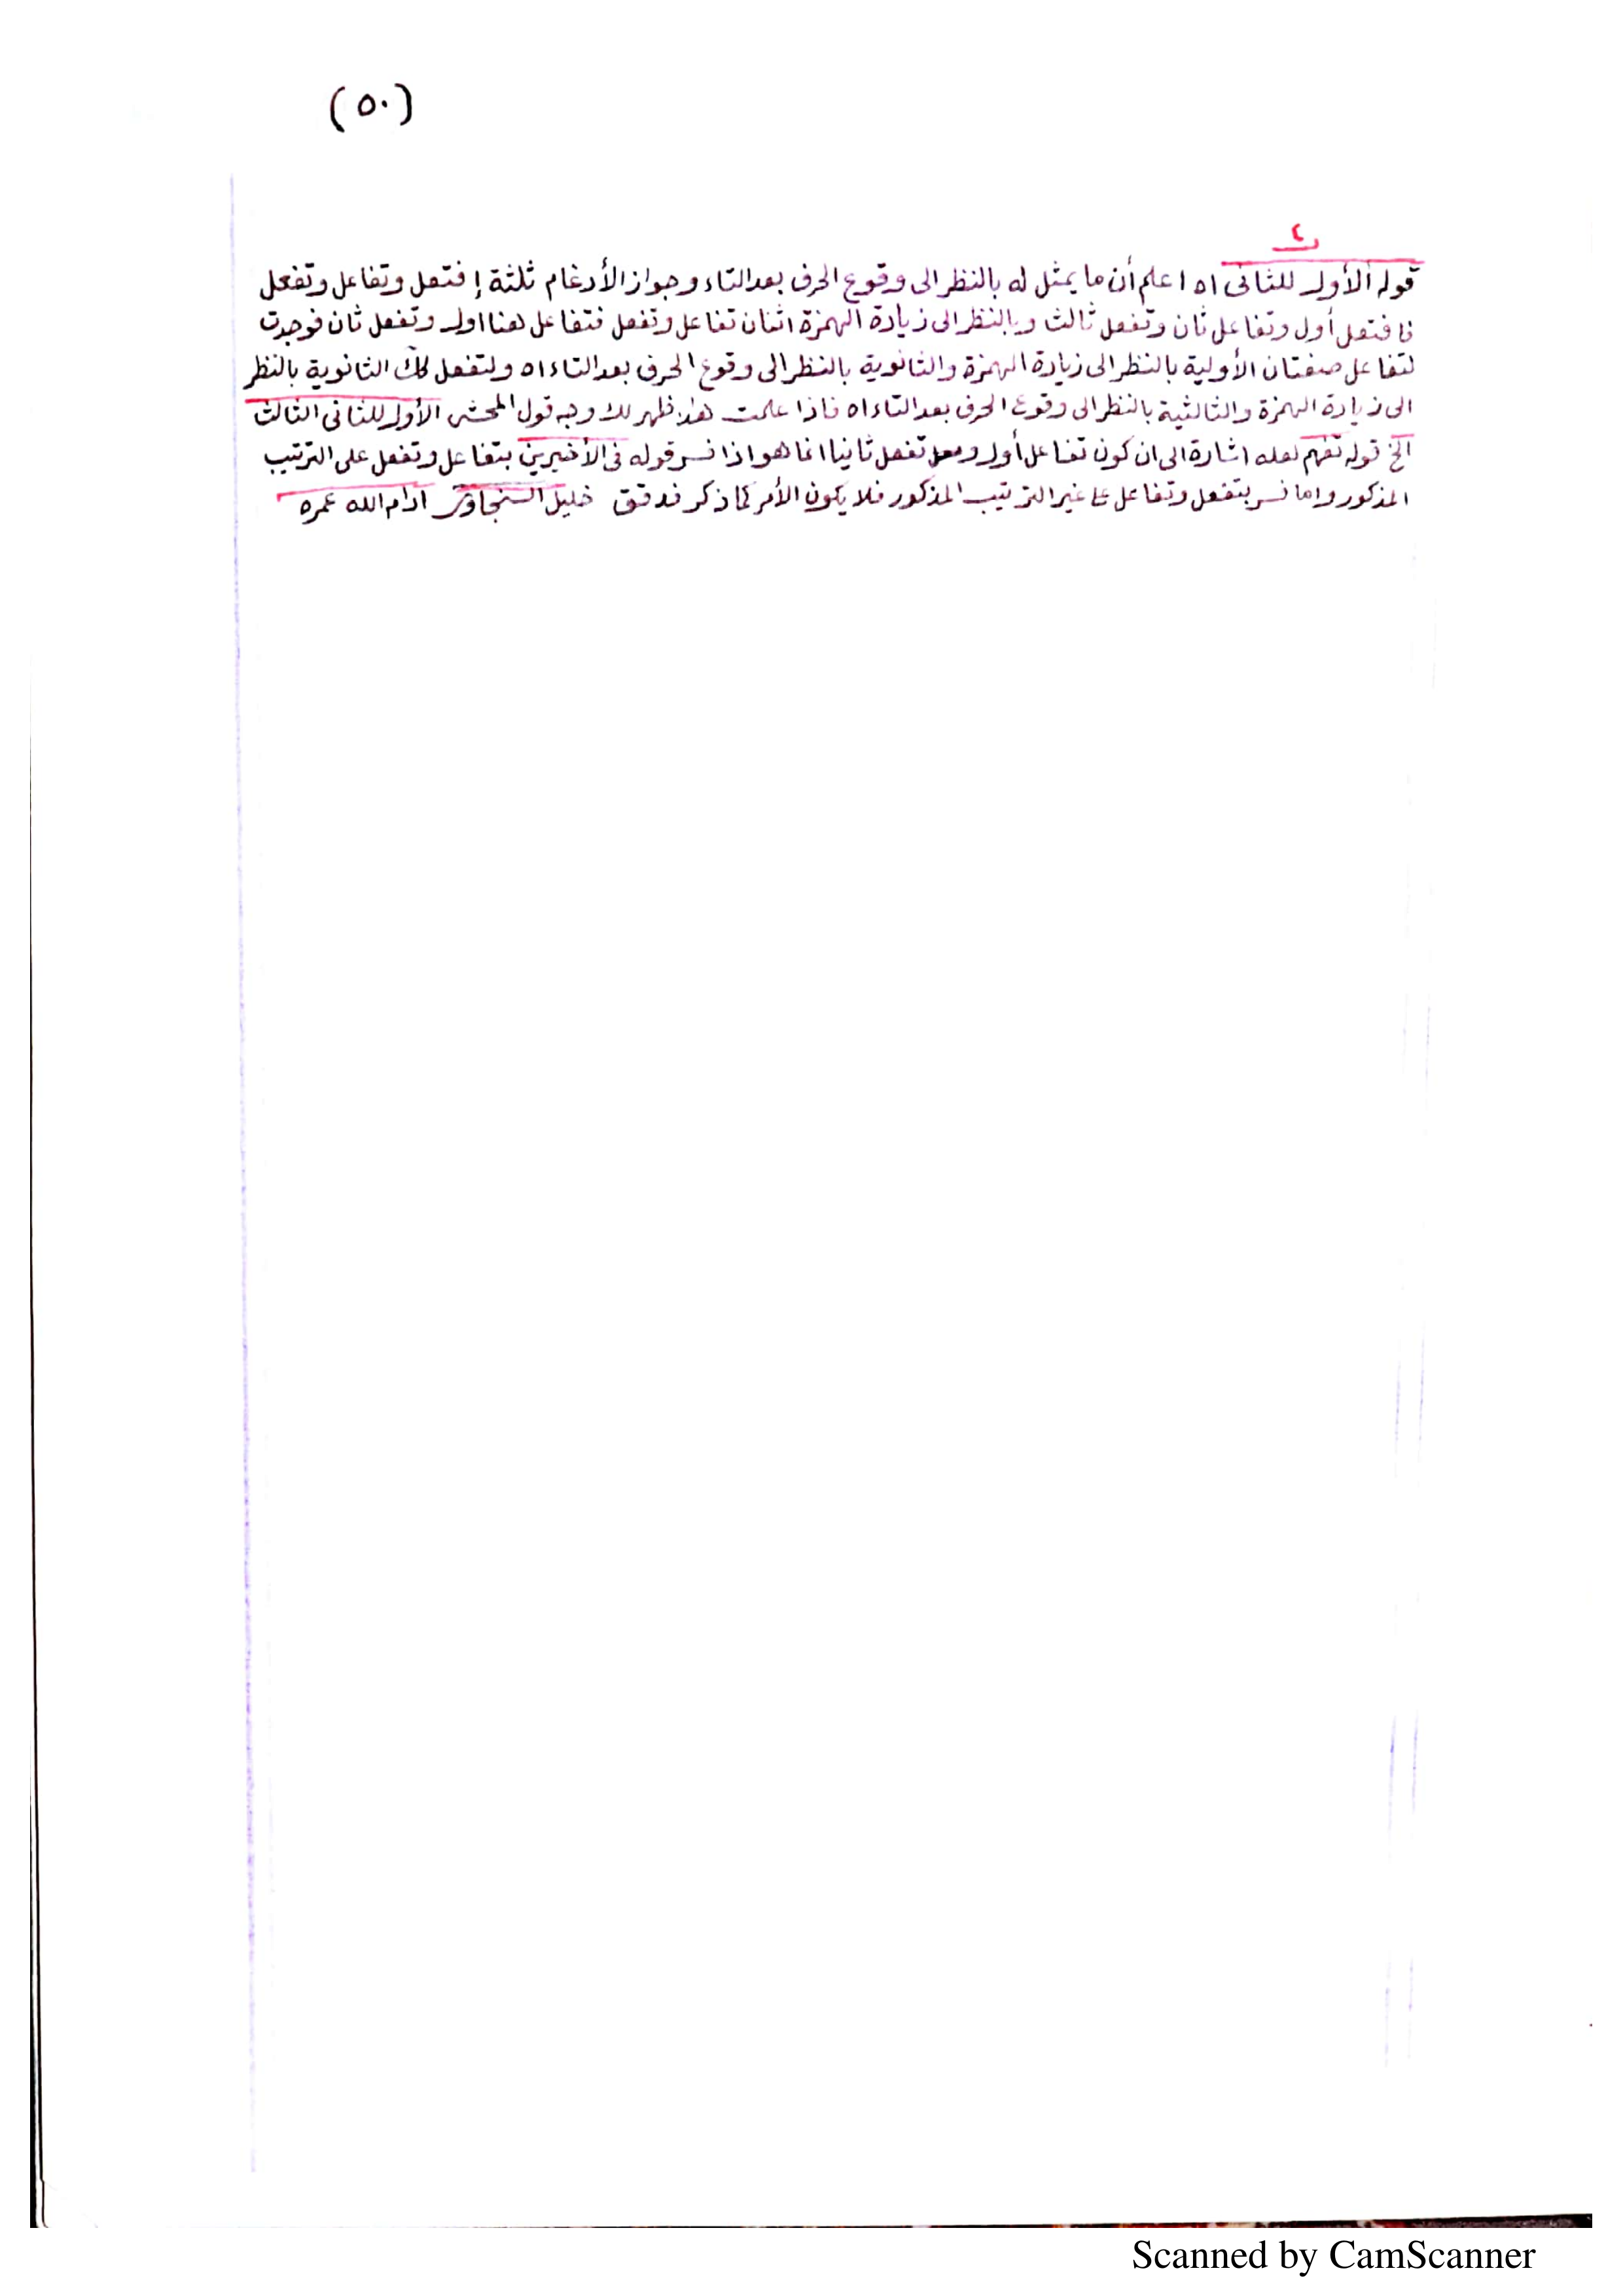 (٥٠)
قوله الأول للثانى اه اعلم أن ما يمثل له بالنظر الى وقوع الحرف بعد التاء وجواز الأدغام ثلثة إفتعل وتفاعل وتفعل
فافتعل أول وتفاعل ثان وتفعل ثالث وبالنظر الى زيادة الهمزة اثنان تفاعل وتفعل فتفاعل هنا اول وتفعل ثان فوجدت
لتفاعل صفتان الأولية بالنظر الى زيادة الهمزة والثانوية بالنظر الى وقوع الحرف بعد التاء اه ولتفعل كك الثانوية بالنظر
الى زيادة الهمزة والثالثية بالنظر الى وقوع الحرف بعد التاء اه فاذا علمت هذا ظهر لك وجه قول المحشى الأول للثانى الثالث
الخ قوله تفهم لعله اشارة الى ان كون تفاعل أول وتفعل ثانيا انما هو اذا فسر قوله فى الأخيرين بتفاعل وتفعل على الترتيب
المذكور واما فسر بتفعل وتفاعل على غير الترتيب المذكور فلا يكون الأمر كما ذكر فدقق خليل السنجاوى ادام الله عمره
Scanned by CamScanner